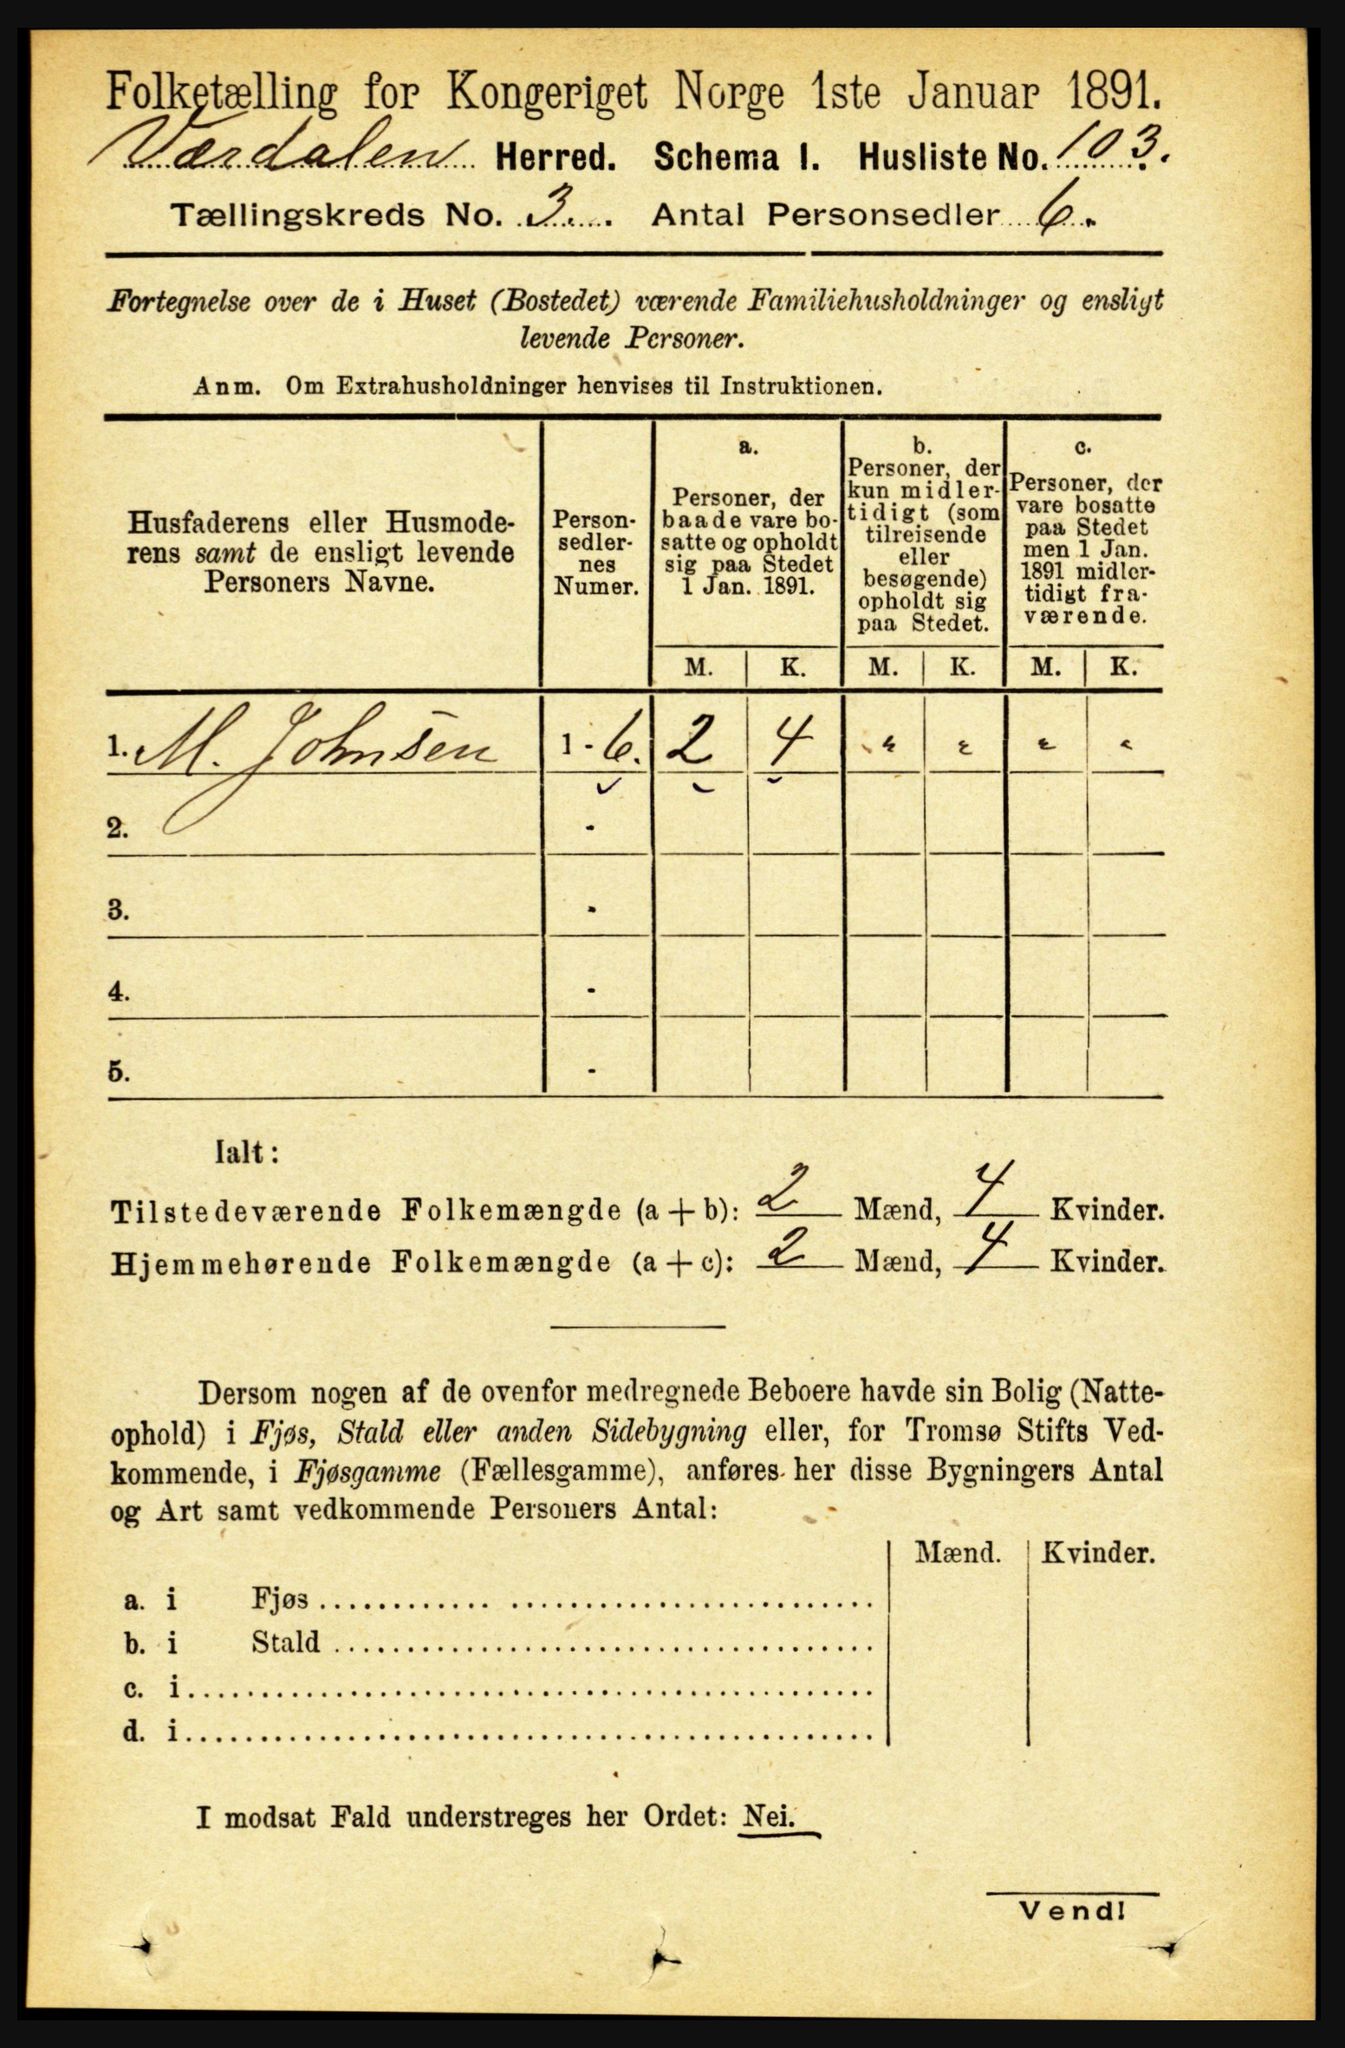 Folketælling for Kongeriget Norge 1ste Januar 1891.
Værdalen Herred. Schema I. Husliste No. 103.
Tællingskreds No. 3. Antal Personsedler 6.
Fortegnelse over de i Huset (Bostedet) værende Familiehusholdninger og ensligt
levende Personer.
Anm. Om Extrahusholdninger henvises til Instruktionen.
Husfaderens eller Husmode-
rens samt de ensligt levende
Personers Navne.
Person-
sedler-
nes
Numer.
a.
Personer, der
baade vare bo-
satte og opholdt
sig paa Stedet
1 Jan. 1891.
b.
Personer, der
kun midler-
tidigt (som
tilreisende
eller
besøgende)
opholdt sig
paa Stedet.
c.
Personer, der
vare bosatte
paa Stedet
men 1 Jan.
1891 midler-
tidigt fra-
værende.
M. K. M. K. M. K.
1. M. Johnsen 1 - 6. 2 4 " " " "
2. -
3. -
4. -
5. -
Ialt:
Tilstedeværende Folkemængde (a + b): 2 Mænd, 4 Kvinder.
Hjemmehørende Folkemængde (a + c): 2 Mænd, 4 Kvinder.
Dersom nogen af de ovenfor medregnede Beboere havde sin Bolig (Natte-
ophold) i Fjøs, Stald eller anden Sidebygning eller, for Tromsø Stifts Ved-
kommende, i Fjøsgamme (Fællesgamme), anføres her disse Bygningers Antal
og Art samt vedkommende Personers Antal:
Mænd. Kvinder.
a. i Fjøs
b. i Stald
c. i
d. i
I modsat Fald understreges her Ordet: Nei.
Vend!